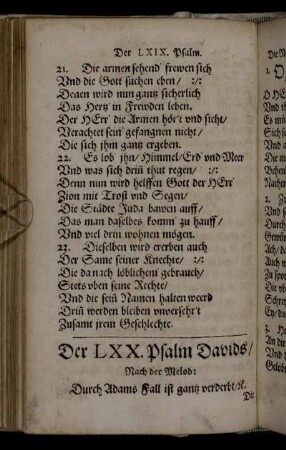 Der LXIX. Psalm.
21. Die armen sehend' frewen sich
Vnd die Gott suchen eben/ :/:
Denen wird nun gantz sicherlich
Das Hertz in Frewden leben.
Der HErr die Armen hör't vnd sicht/
Verachtet sein gefangnen nicht/
Die sich jhm gantz ergeben.
22. Es lob' jhn/ Himmel/ Erd' vnd Meer
Vnd was sich drin̄ thut regen/ :/:
Denn nun wird helffen Gott der HErr
Zion mit Trost vnd Segen/
Die Städte Juda bawen auff/
Das man daselbes komm' zu hauff/
Vnd viel drin wohnen mögen.
23. Dieselben wird ererben auch
Der Same seiner Knechte/ :/:
Die da nach löblichem gebrauch/
Stets vben seine Rechte/
Vnd die sein̄ Namen halten weerd
Drin̄ werden bleiben vnversehr't
Zusamt jrem Geschlechte.
Der LXX. Psalm Davids/
Nach der Melod:
Durch Adams Fall ist gantz verderbt/ꝛc.
Die